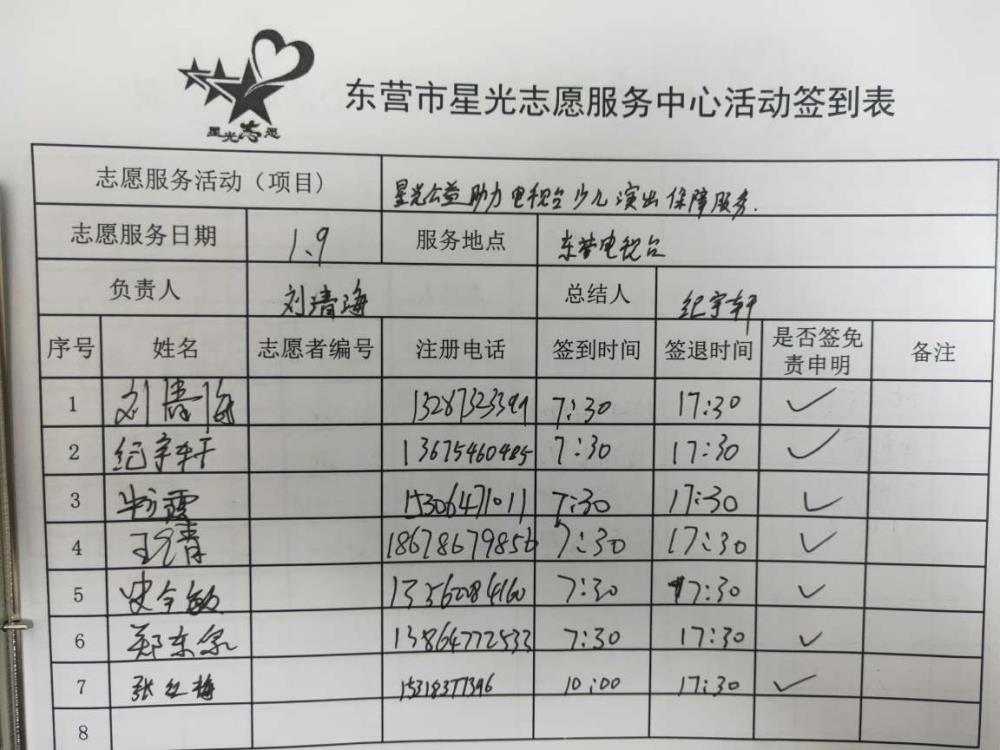 星光志愿
东营市星光志愿服务中心活动签到表
志愿服务活动（项目） 星光公益助力电视台少儿演出保障服务.
志愿服务日期 1、9 服务地点 东营电视台
负责人 刘清海 总结人 纪宇轩
序号 姓名 志愿者编号 注册电话 签到时间 签退时间 是否签免责申明 备注
1 刘清海 13287323399 7:30 17:30 ✓
2 纪宇轩 13675460485 7:30 17:30 ✓
3 15306471011 7:30 17:30 ✓
4 18678679856 7:30 17:30 ✓
5 13562084160 7:30 17:30 ✓
6 郑东泉 13864772533 7:30 17:30 ✓
7 张红梅 15318377396 10:00 17:30 ✓
8